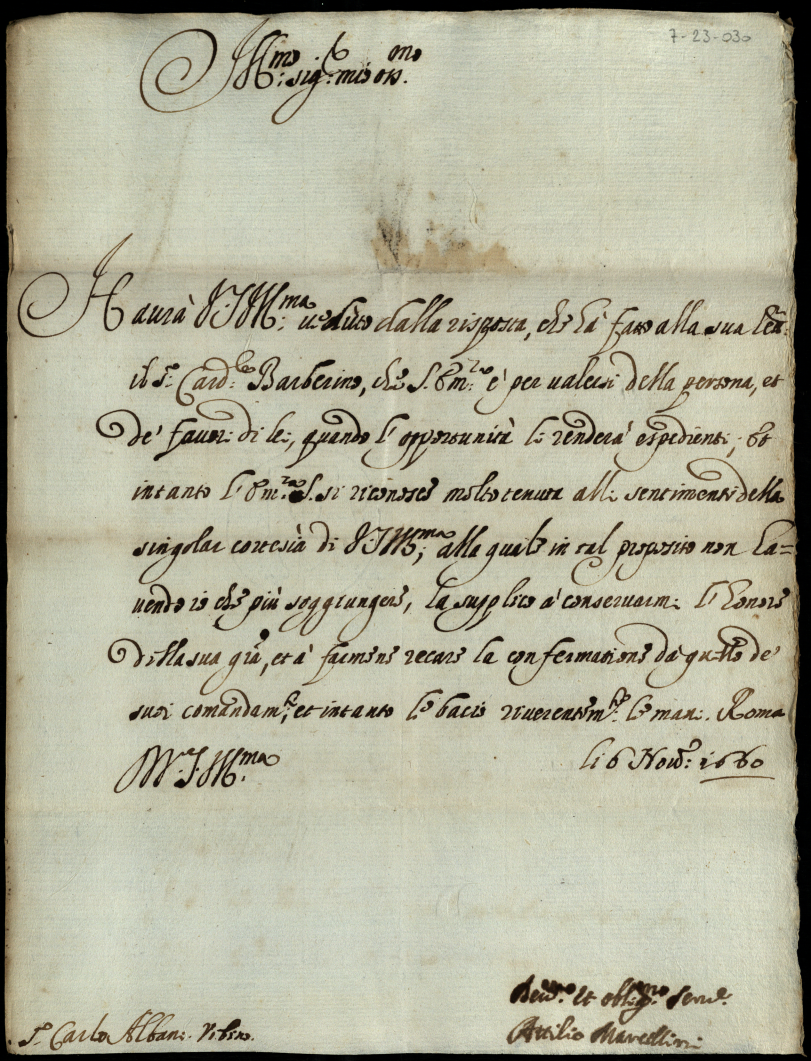 7-23-030
Ill.mo Sig.re mio oss.mo
Haurà V.S. Ill.ma ueduto dalla risposta, che hà fatto alla sua lra:
il S.r Card.le Barberino, che S. Em.za è per ualersi della persona, et
de' fauori di lei, quando l'opportunità li renderà espedienti; et
intanto l'Em.za S. si riconosce molto tenuta alli sentimenti della
singolar cortesia di V.S. Ill.ma; alla quale in tal proposito non ha=
uendo io che più soggiungere, la supplico à conseruarmi l'honore
della sua gra, et à farmene recare la confermatione da quello de
suoi comandam.ti, et intanto le bacio riuerentem.te le mani. Roma
li 6 Nou.e 1660
V.S. Ill.ma
Deu.mo et oblig.mo seru.e
Attilio Marcellini
S.r Carlo Albani. Vrbino.